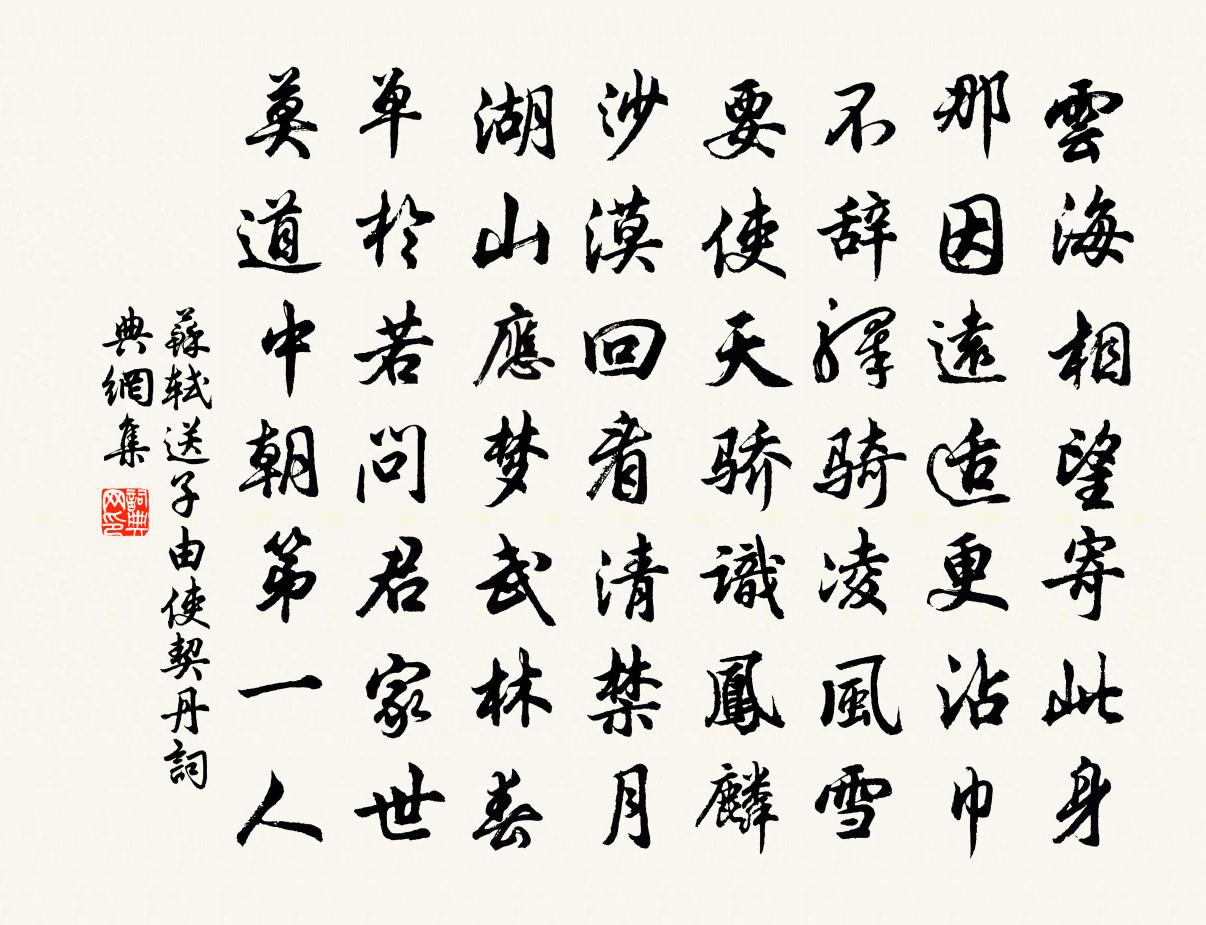 雲海相望寄此身
那因遠适更沾巾
不辞驛騎凌風雪
要使天骄識鳳麟
沙漠回看清禁月
湖山應梦武林春
单於若問君家世
莫道中朝第一人
蘇軾送子由使契丹詞
典網集
詞典
网印